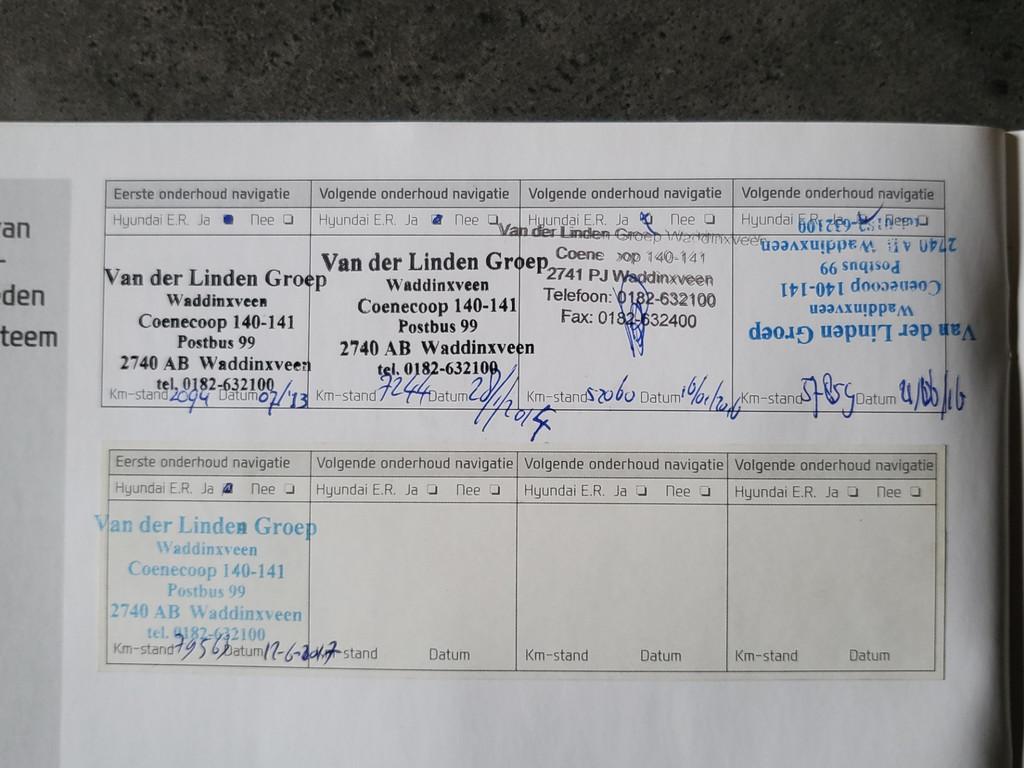 an
-
den
teem
Eerste onderhoud navigatie
Hyundai E.R. Ja Nee
Van der Linden Groep
Waddinxveen
Coenecoop 140-141
Postbus 99
2740 AB Waddinxveen
tel. 0182-632100
Km-stand 2094 Datum 07/'13
Volgende onderhoud navigatie
Hyundai E.R. Ja Nee
Van der Linden Groep
Waddinxveen
Coenecoop 140-141
Postbus 99
2740 AB Waddinxveen
tel. 0182-632100
Km-stand 7244 Datum 28/1/2014
Volgende onderhoud navigatie
Hyundai E.R. Ja Nee
Van der Linden Groep Waddinxveen
Coene oop 140-141
2741 PJ Waddinxveen
Telefoon: 0182-632100
Fax: 0182-632400
Km-stand 52060 Datum 16/01/2016
Volgende onderhoud navigatie
Hyundai E.R. Ja Nee
Van der Linden Groep
Waddinxveen
Coenecoop 140-141
Postbus 99
2740 AB Waddinxveen
tel. 0182-632100
Km-stand Datum
Eerste onderhoud navigatie
Hyundai E.R. Ja Nee
Van der Linden Groep
Waddinxveen
Coenecoop 140-141
Postbus 99
2740 AB Waddinxveen
tel. 0182-632100
Km-stand 79563 Datum 12-6-2017
Volgende onderhoud navigatie
Hyundai E.R. Ja Nee
-stand Datum
Volgende onderhoud navigatie
Hyundai E.R. Ja Nee
Km-stand Datum
Volgende onderhoud navigatie
Hyundai E.R. Ja Nee
Km-stand Datum